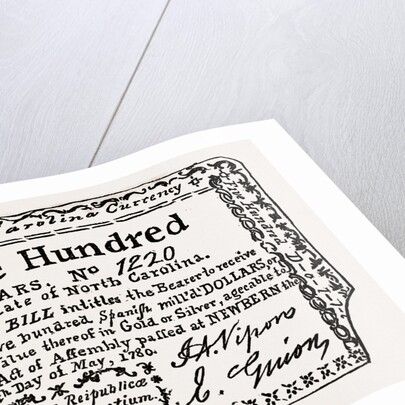 Carolina Currency
Hundred
ARS. No 1220
ate of North Carolina.
BILL intitles the Bearer to receive
ve hundred, Spanish mill'd DOLLARS, or
alue thereof in Gold or Silver, agreeable to
Act of Assembly passed at NEWBERN the
th Day of May, 1780.
Reipublicæ